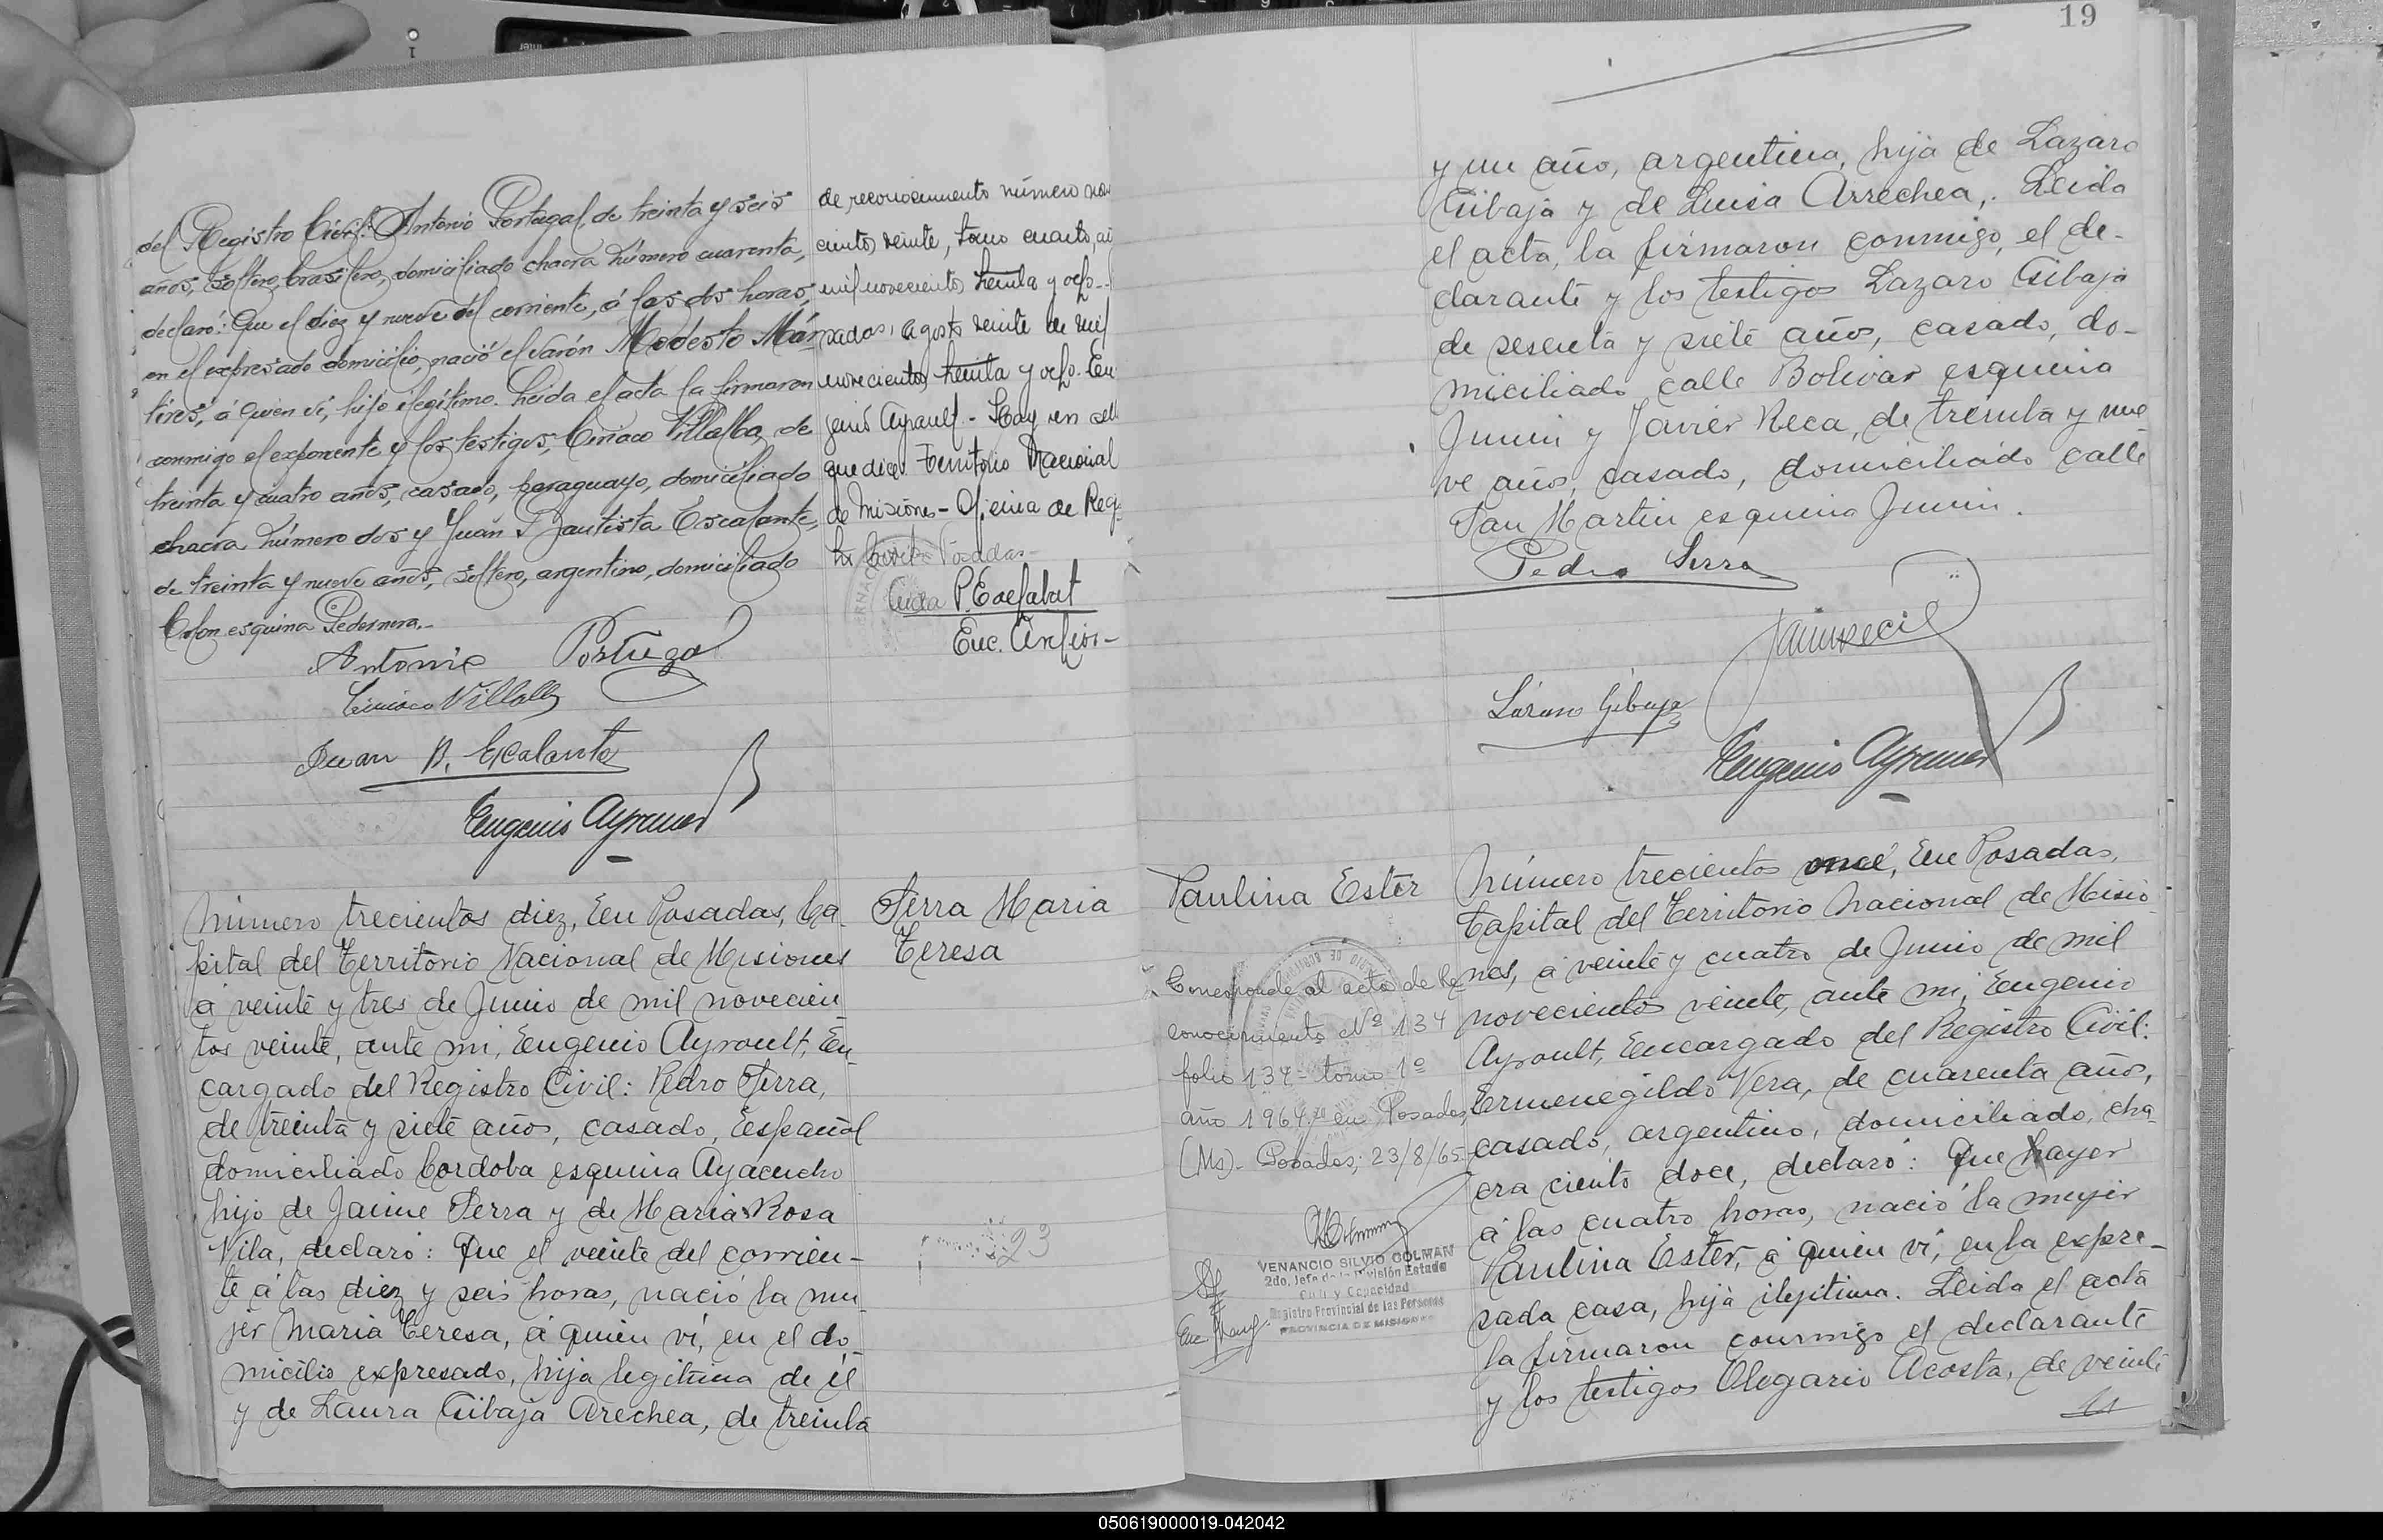 del Registro Civil: Antonio Portugal, de treinta y seis
años, soltero, brasilero, domiciliado chacra número cuarenta,
declaró: Que el diez y nueve del corriente, á las dos horas,
en el expresado domicilio, nació el varón Modesto Már
tires, á quien ví, hijo ilegítimo. Leida el acta la firmaron
conmigo el exponente y los testigos, Ciriaco Villalba, de
treinta y cuatro años, casado, paraguayo, domiciliado
chacra número dos y Juan Bautista Escalante,
de treinta y nueve años, soltero, argentino, domiciliado
Colon esquina Pedernera.-
Antonio Portugal
Ciriaco Villalba
Juan B. Escalante
Eugenio Ayrault
de reconocimiento número no
cientos veinte, tomo cuarto, añ
mil novecientos treinta y ocho.-
sadas, agosto veinte de mil
novecientos treinta y ocho. Eu
genio Ayrault - Hay un sell
que dice: Territorio Nacional
de Misiones - Oficina de Reg
Civil Posadas-
Enc.
Número trecientos diez, En Posadas, Ca
pital del Territorio Nacional de Misiones
á veinte y tres de Junio de mil novecien
tos veinte, ante mi, Eugenio Ayrault, En
cargado del Registro Civil: Pedro Serra,
de treinta y siete años, casado, Español
domiciliado Cordoba esquina Ayacucho
hijo de Jaime Serra y de Maria Rosa
Vila, declaró: Que el veinte del corrien-
te á las diez y seis horas, nació la mu
jer Maria Teresa, á quien ví, en el do
micilio expresado, hija legitima de él
y de Laura Gibaja Arechea, de treinta
Serra Maria
Teresa
23
19
y un año, argentina, hija de Lazaro
Gibaja y de Luisa Arrechea,. Leida
el acta, la firmaron conmigo, el de-
clarante y los testigos Lazaro Gibaja
de sesenta y siete años, casado, do-
miciliado calle Bolivar esquina
Junin y Javier Reca, de treinta y nue
ve años, casado, domiciliado calle
San Martin esquina Junin.
Pedro Serra
Lázaro Gibaja
Eugenio Ayrault
Paulina Ester
Corresponde al acta de Re
conocimiento Nº 134
folio 134 - tomo 1º
año 1964 en Posadas,
(Ms)- Posadas; 23/8/65
VENANCIO SILVIO COLMAN
2do. Jefe de la División Estado
Civil y Capacidad
Registro Provincial de las Personas
PROVINCIA DE MISIONES
Número trecientos once, En Posadas,
Capital del Territorio Nacional de Misio
nes, á veinte y cuatro de Junio de mil
novecientos veinte, ante mi, Eugenio
Ayrault, Encargado del Registro Civil:
Ermenegildo Vera, de cuarenta años,
casado, argentino, domiciliado, cha
cra ciento doce, declaró: Que hayer
á las cuatro horas, nació la mujer
Paulina Ester, á quien ví, en la expre-
sada casa, hija ilejitima. Leida el acta
la firmaron conmigo el declarante
y los testigos Olegario Acosta, de veinte
050619000019-042042